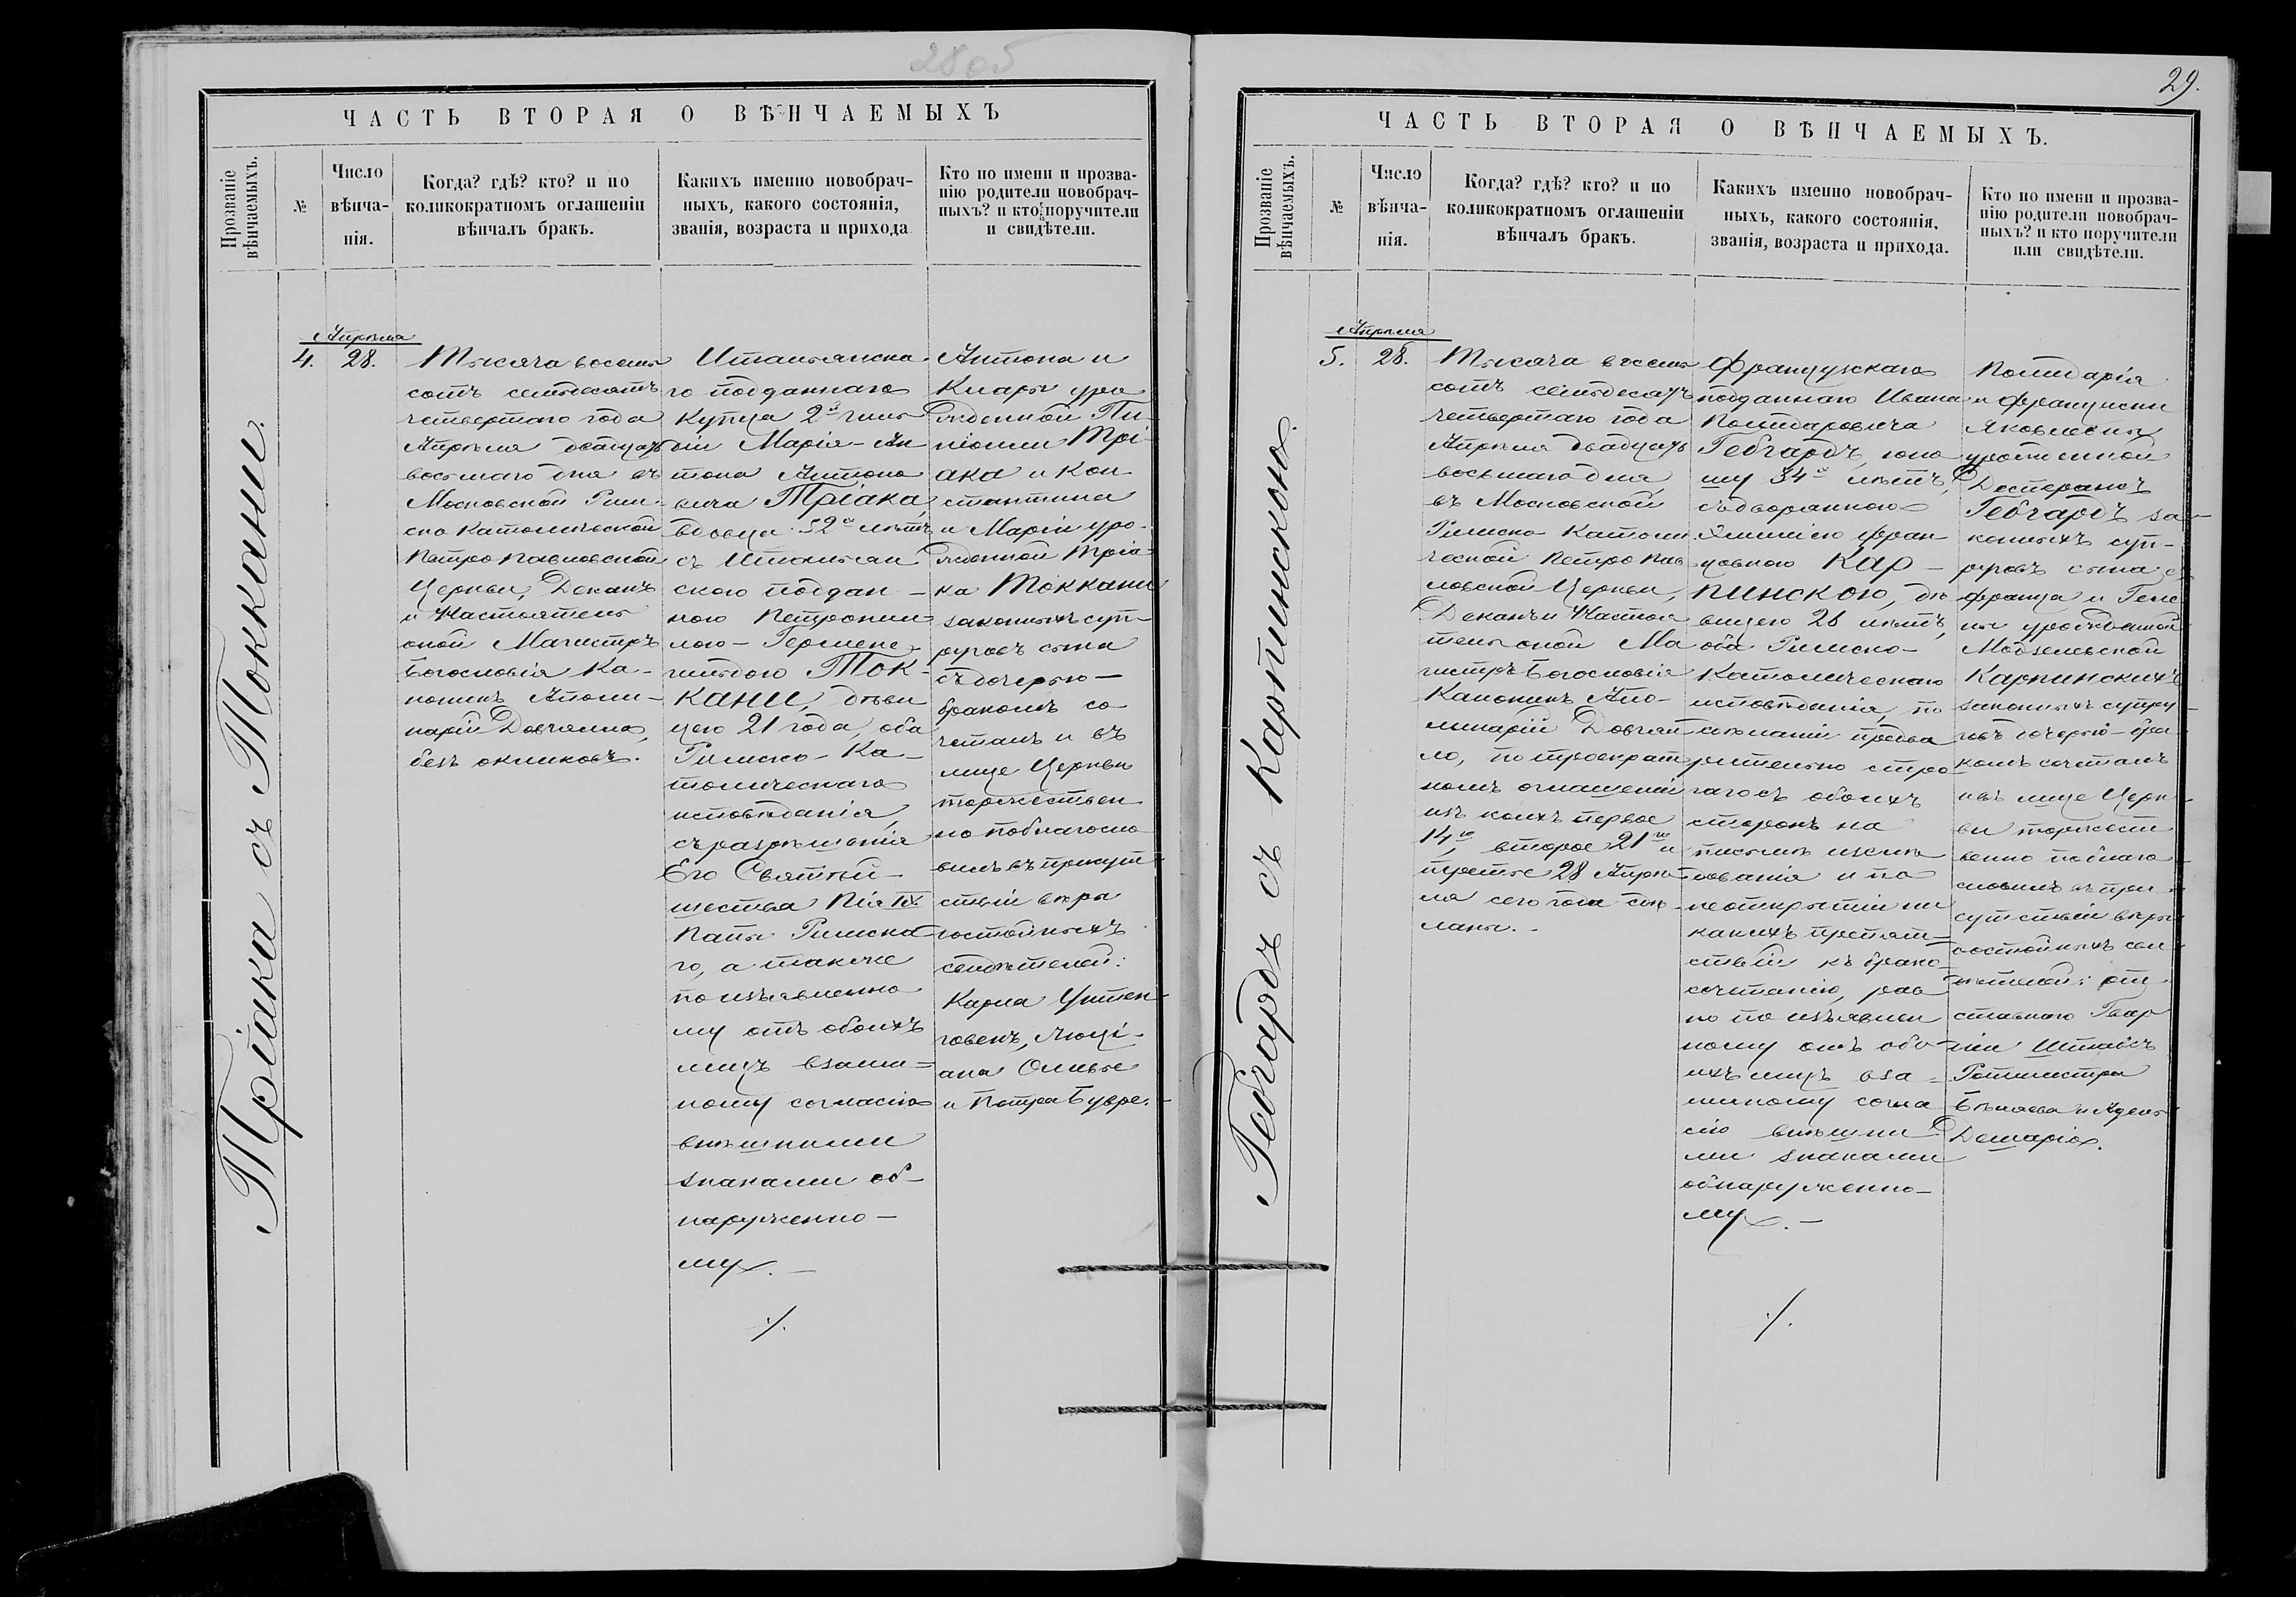 28 об
ЧАСТЬ ВТОРАЯ О ВѢНЧАЕМЫХЪ
Прозваніе вѣнчаемыхъ.
№
Число
вѣнча-
нія.
Когда? гдѣ? кто? и по
коликократномъ оглашеніи
вѣнчалъ бракъ.
Какихъ именно новобрач-
ныхъ, какого состоянія,
званія, возраста и прихода
Кто по имени и прозва-
нію родители новобрач-
ныхъ? и кто поручители
и свидѣтели.
Тріака съ Токкани.
Апрѣля
4. 28.
Тысяча восемь
сотъ семьдесятъ
четвертаго года
Апрѣля двадцать
восьмаго дня въ
Московской Рим-
ско Католической
Петро Павловской
Церкви, Деканъ
и Настоятель
оной Магистръ
Богословія Ка-
ноникъ Аполи-
нарій Довгялло,
безъ окликовъ.
Итальянска-
го подданнаго
купца 2й гиль-
діи Марія-Ан
тона Антоно
вича Тріака,
вдовца 52х лѣтъ
съ Итальян
скою поддан-
ною Петронил-
лою-Гермене-
гильдою Ток-
кани, дѣви
цею 21 года, оба
Римско-Ка-
толическаго
исповѣданія,
съ разрѣшенія
Его Святѣй-
шества Пія IX.
Папы Римска-
го, а также
по изъявленно
му отъ обоихъ
лицъ взаим-
ному согласію
внѣшними
знаками об-
наруженно-
му. —
Антона и
Клары уро
жденной Пи-
ніоли Трі-
ака и Кон
стантина
и Маріи уро-
жденной Тріа-
ка Токкани
законныхъ суп-
руговъ сына
съ дочерью —
бракомъ со
четалъ и въ
лице Церкви
торжествен
но поблагосло
вилъ въ присут-
ствіи вѣро
достойныхъ
свидѣтелей:
Карла Уттен-
говенъ, Люці-
ана Оливье
и Петра Бувре.
./.
29.
ЧАСТЬ ВТОРАЯ О ВѢНЧАЕМЫХЪ.
Прозваніе вѣнчаемыхъ.
№
Число
вѣнча-
нія.
Когда? гдѣ? кто? и по
коликократномъ оглашеніи
вѣнчалъ бракъ.
Какихъ именно новобрач-
ныхъ, какого состоянія,
званія, возраста и прихода.
Кто по имени и прозва-
нію родители новобрач-
ныхъ? и кто поручители
или свидѣтели.
Гебгардъ съ Карпинскою.
Апрѣля
5. 28.
Тысяча восемь
сотъ семьдесятъ
четвертаго года
Апрѣля двадцать
восьмаго дня,
въ Московской
Римско Католи
ческой Петро Пав
ловской Церкви,
Деканъ и Настоя
тель оной Ма
гистръ Богословія
Каноникъ Апо-
линарій Довгял
ло, по троекрат
номъ оглашеніи
изъ коихъ первое
14го, второе 21го и
третье 28 Апрѣ-
ля сего года сдѣ
ланы. -
Французскаго
подданнаго Ивана
Полидаровича
Гебгардъ, юно
шу 34х лѣтъ,
съ дворянкою
Эмиліею Фран-
цовною Кар-
пинскою, дѣ
вицею 28 лѣтъ,
оба Римско-
Католическаго
исповѣданія, по
сдѣланіи предва
рительно стро-
гаго съ обоихъ
сторонъ на
письмѣ изслѣ
дованія и по
неоткрытіи ни
какихъ препят-
ствій къ брако-
сочетанію, рав
но по изъявлен
ному отъ обо-
ихъ лицъ вза-
имному согла
сію внѣшни
ми знаками
обнаруженно-
му. —
Полидарія
и Францишки
Яковлевны
урожденной
Десперанъ
Гебгардъ за-
конныхъ суп-
руговъ сына съ
Франца и Геле
ны урожденной
Модзелевской
Карпинскихъ
законныхъ супру-
говъ дочерью-бра
комъ сочеталъ
и въ лице Церк-
ви торжест
венно поблаго-
словилъ въ при-
сутствіи вѣро
достойныхъ сви
дѣтелей: от
ставного Гвар
діи Штабсъ
Ротмистра
Бѣляева и Адель
Демаріо.
./.